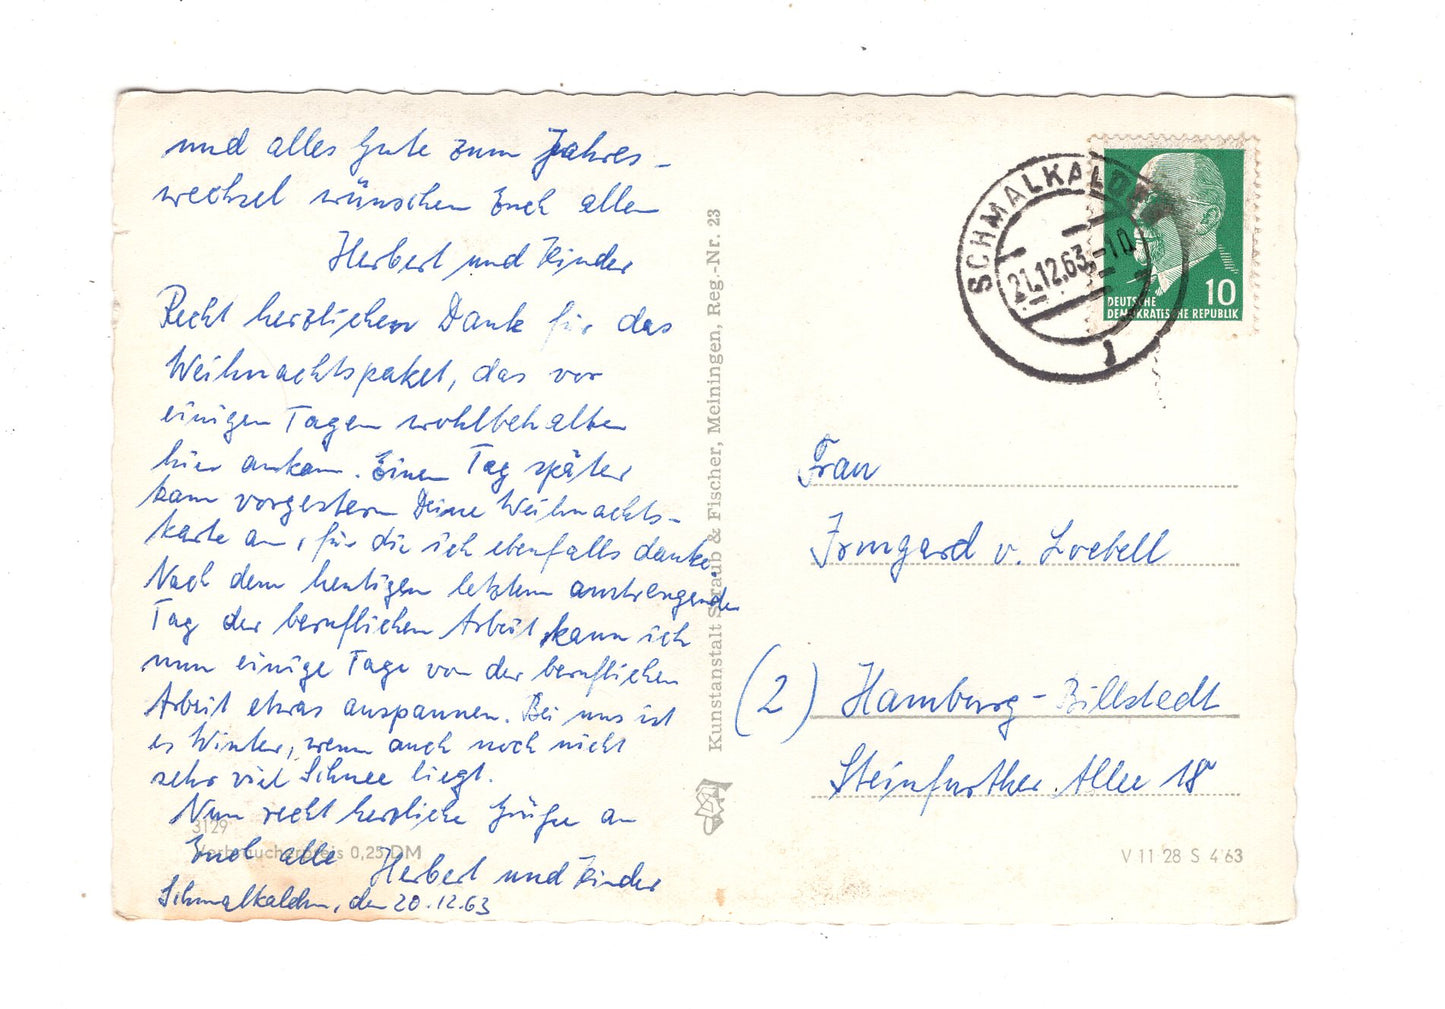 und alles Gute zum Jahres-
wechsel wünschen Euch allen
Herbert und Kinder
Recht herzlichen Dank für das
Weihnachtspaket, das vor
einigen Tagen wohlbehalten
hier ankam. Einen Tag später
kam vorgestern Deine Weihnachts-
karte an, für die ich ebenfalls danke.
Nach dem heutigen letzten anstrengenden
Tag der beruflichen Arbeit kann ich
nun einige Tage von der beruflichen
Arbeit etwas ausspannen. Bei uns ist
es Winter, wenn auch noch nicht
sehr viel Schnee liegt.
Nun recht herzliche Grüße an
Euch alle Herbert und Kinder
Schmalkalden, den 20.12.63
3129
Verbraucherpreis 0,25 DM
Kunstanstalt Straub & Fischer, Meiningen, Reg.-Nr. 23
SCHMALKALDEN
21.12.63.-10
1
10
DEUTSCHE
DEMOKRATISCHE REPUBLIK
Frau
Irmgard v. Loebell
(2) Hamburg-Billstedt
Steinfurther Allee 18
V 11 28 S 4 63